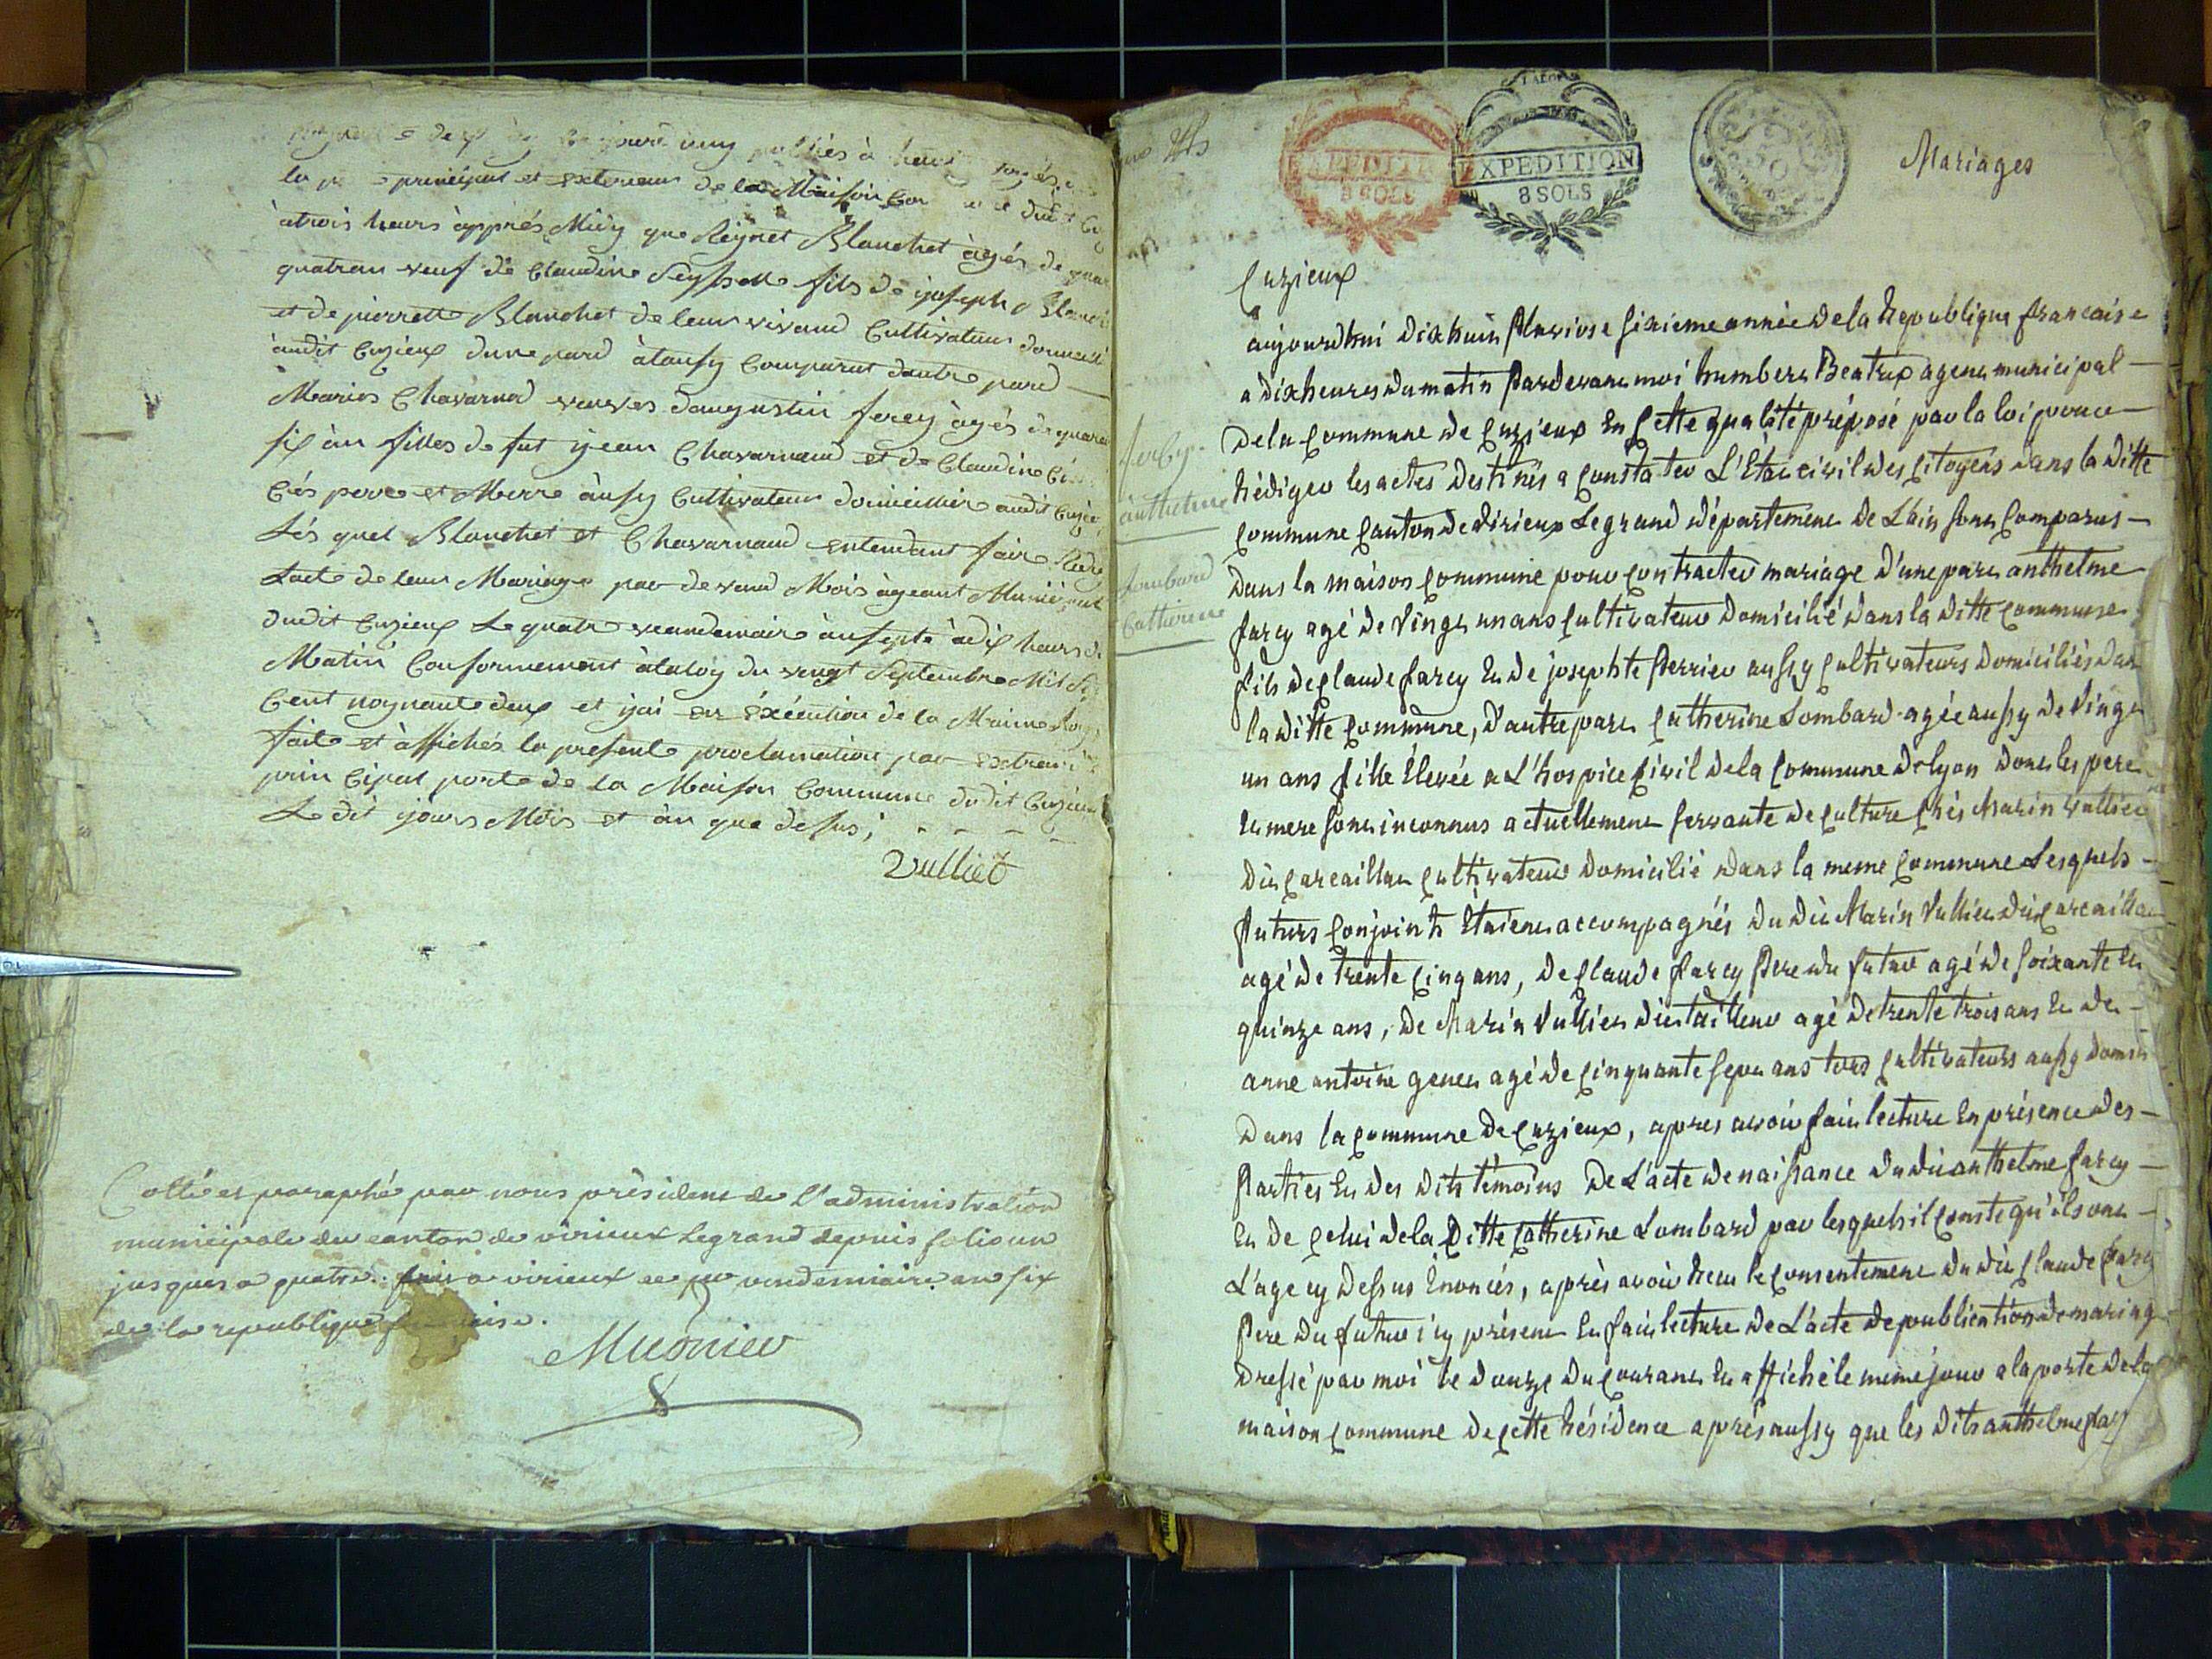 publiés à
principal et exterieur de la Maison
àtrois heurs àpprés Midy que Reynet Blanchet àgés de
quatran veuf de Claudine fils de ijoseph
et de pierrette Blanchet de leur vivand Cultivateur
àudit Cuzieux dune pard àtaussy Comparut dautre pard
Maries Chavarnod veuves daugustin farcy àgés de
six àn filles de fut ijean Chavarnaud et de Claudine
perre et Merre àussy Cultivateur domicillié audit
Lés quel Blanchet et Chavarnaud entendant faire
Lacte de leur Mariage par devand Mois àgeant
dudit Cuzieux Le quatre veandemaire àn septe àdix heurs
Matin Conformement àlaloy du vengt Septembre Mil
Cent noynante deux et ijai en éxécution de la Maime
fait et àffichés la presente proclamation par extrait
prin Cipal porte de la Maison Commune dudit Cuzieux
Le dit ijours Mois et àn que desus;
Vulliet
Cotté et paraphé par nous président de l'administration
municipale du canton de virieux Legrand depuis folio un
jusques a quatre. fait a virieux ce vendemiaire an six
de la republique
Musnier
Mariages
EXPEDITION
8 SOLS
EXPEDITION
8 SOLS
Cuzieux
aujourdhui dixhuit Pluviose sixieme année de la Republique francaise
a dix heures du matin Pardevant moi humbert Beatrix agent municipal
de la Commune de Cuzieux En Cette qualité préposé par la loi pour
farcy
Rédiger les actes destinés a Constater L'État civil des Citoyens dans la ditte
anthelme
Commune Canton de Virieux Legrand département de L'ain sont Comparus
dans la maison Commune pour Contracter mariage d'une part anthelme
Lombard
farcy agé de Vingt un ans Cultivateur domicilié dans la ditte Commune
Catherine
fils de Claude farcy Et de josephte Perrier aussy Cultivateurs domiciliés dans
la ditte Commune, d'autre part Catherine Lombard agée aussy de Vingt
un ans fille Elevée a L'hospice Civil de la Commune de lyon dont les pere
Et mere sont inconnus actuellement servante de Culture chés Marin vulliet
dit Carcaillat Cultivateur domicilié dans la meme Commune Lesquels
futurs Conjoints Etaient accompagnés du dit Marin Vulliet dit Carcaillat
agé de trente Cinq ans, de Claude farcy Pere du futur agé de soixante Et
quinze ans, de Marin Vulliet dit tailleur agé de trente trois ans Et de
anne antoine genet agé de Cinquante sept ans tous Cultivateurs aussy
dans la Commune de Cuzieux, apres avoir fait lecture En présence des
Parties Et des dits témoins De L'acte de naissance du dit anthelme farcy
Et de Celui de la Ditte Catherine Lombard par lesquels il Conste qu'ils ont
L'age cy dessus Enoncés, après avoir Recu le Consentement du dit Claude farcy
Pere du futur icy présent Et fait lecture de L'acte de publication de mariage
dressé par moi le douze du Courant Et affiché le meme jour a la porte de la
maison Commune de Cette Résidence après aussy que les dits anthelme farcy